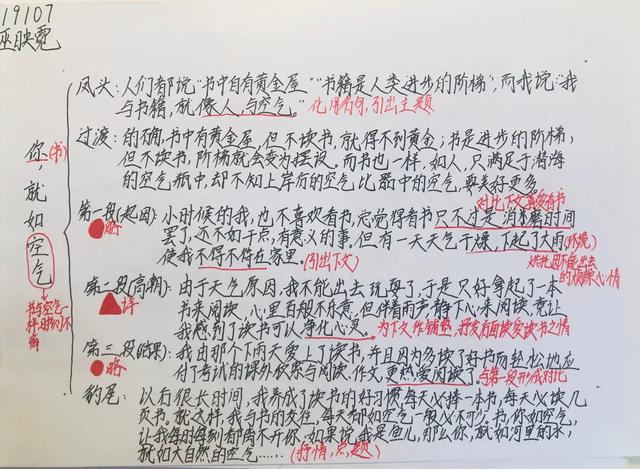 19107
巫映霓
你(书),就如空气
书与空气一样,时刻不离
凤头:人们都说“书中自有黄金屋”“书籍是人类进步的阶梯”,而我说:“我
与书籍,就像人与空气。”化用名句,引出主题
过渡:的确,书中有黄金屋,但不读书,就得不到黄金;书是进步的阶梯,
但不读书,阶梯就会变为摆设,而书也一样,如人,只满足于
的空气瓶中,却不知上岸后的空气比瓶中的空气,要美好更多
对比下文喜爱看书
第一段(起因):小时候的我,也不喜欢看书,总觉得看书只不过是消磨时间
略
罢了,还不如干点,有意义的事,但有一天天气干燥,下起了大雨(环境)
使我不得不待在家里。(引出下文)
烘托因不能出去的烦躁心情
第二段(高潮):由于天气原因,我不能出去玩耍了,于是只好拿起了一本
详
书来阅读,心里百般不乐意,但伴着雨声,静下心来阅读,竟让
我感到了读书可以净化心灵。为下文作铺垫,抒发后面读爱读书之情
第三段(结果):我由那个下雨天爱上了读书,并且因为多读了好书而轻松地应
略
付了考试的课外积累与阅读、作文,更热爱阅读了。与第一段形成对比
豹尾:以后很长时间,我养成了读书的好习惯,每天必捧一本书,每天必读几
页书。就这样,我与书的友谊,每天都如空气一般必不可少,书,你如空气,
让我每时每刻都离不开你,如果说,我是鱼儿,那么你,就如河里的水;
就如大自然的空气……(抒情,点题)